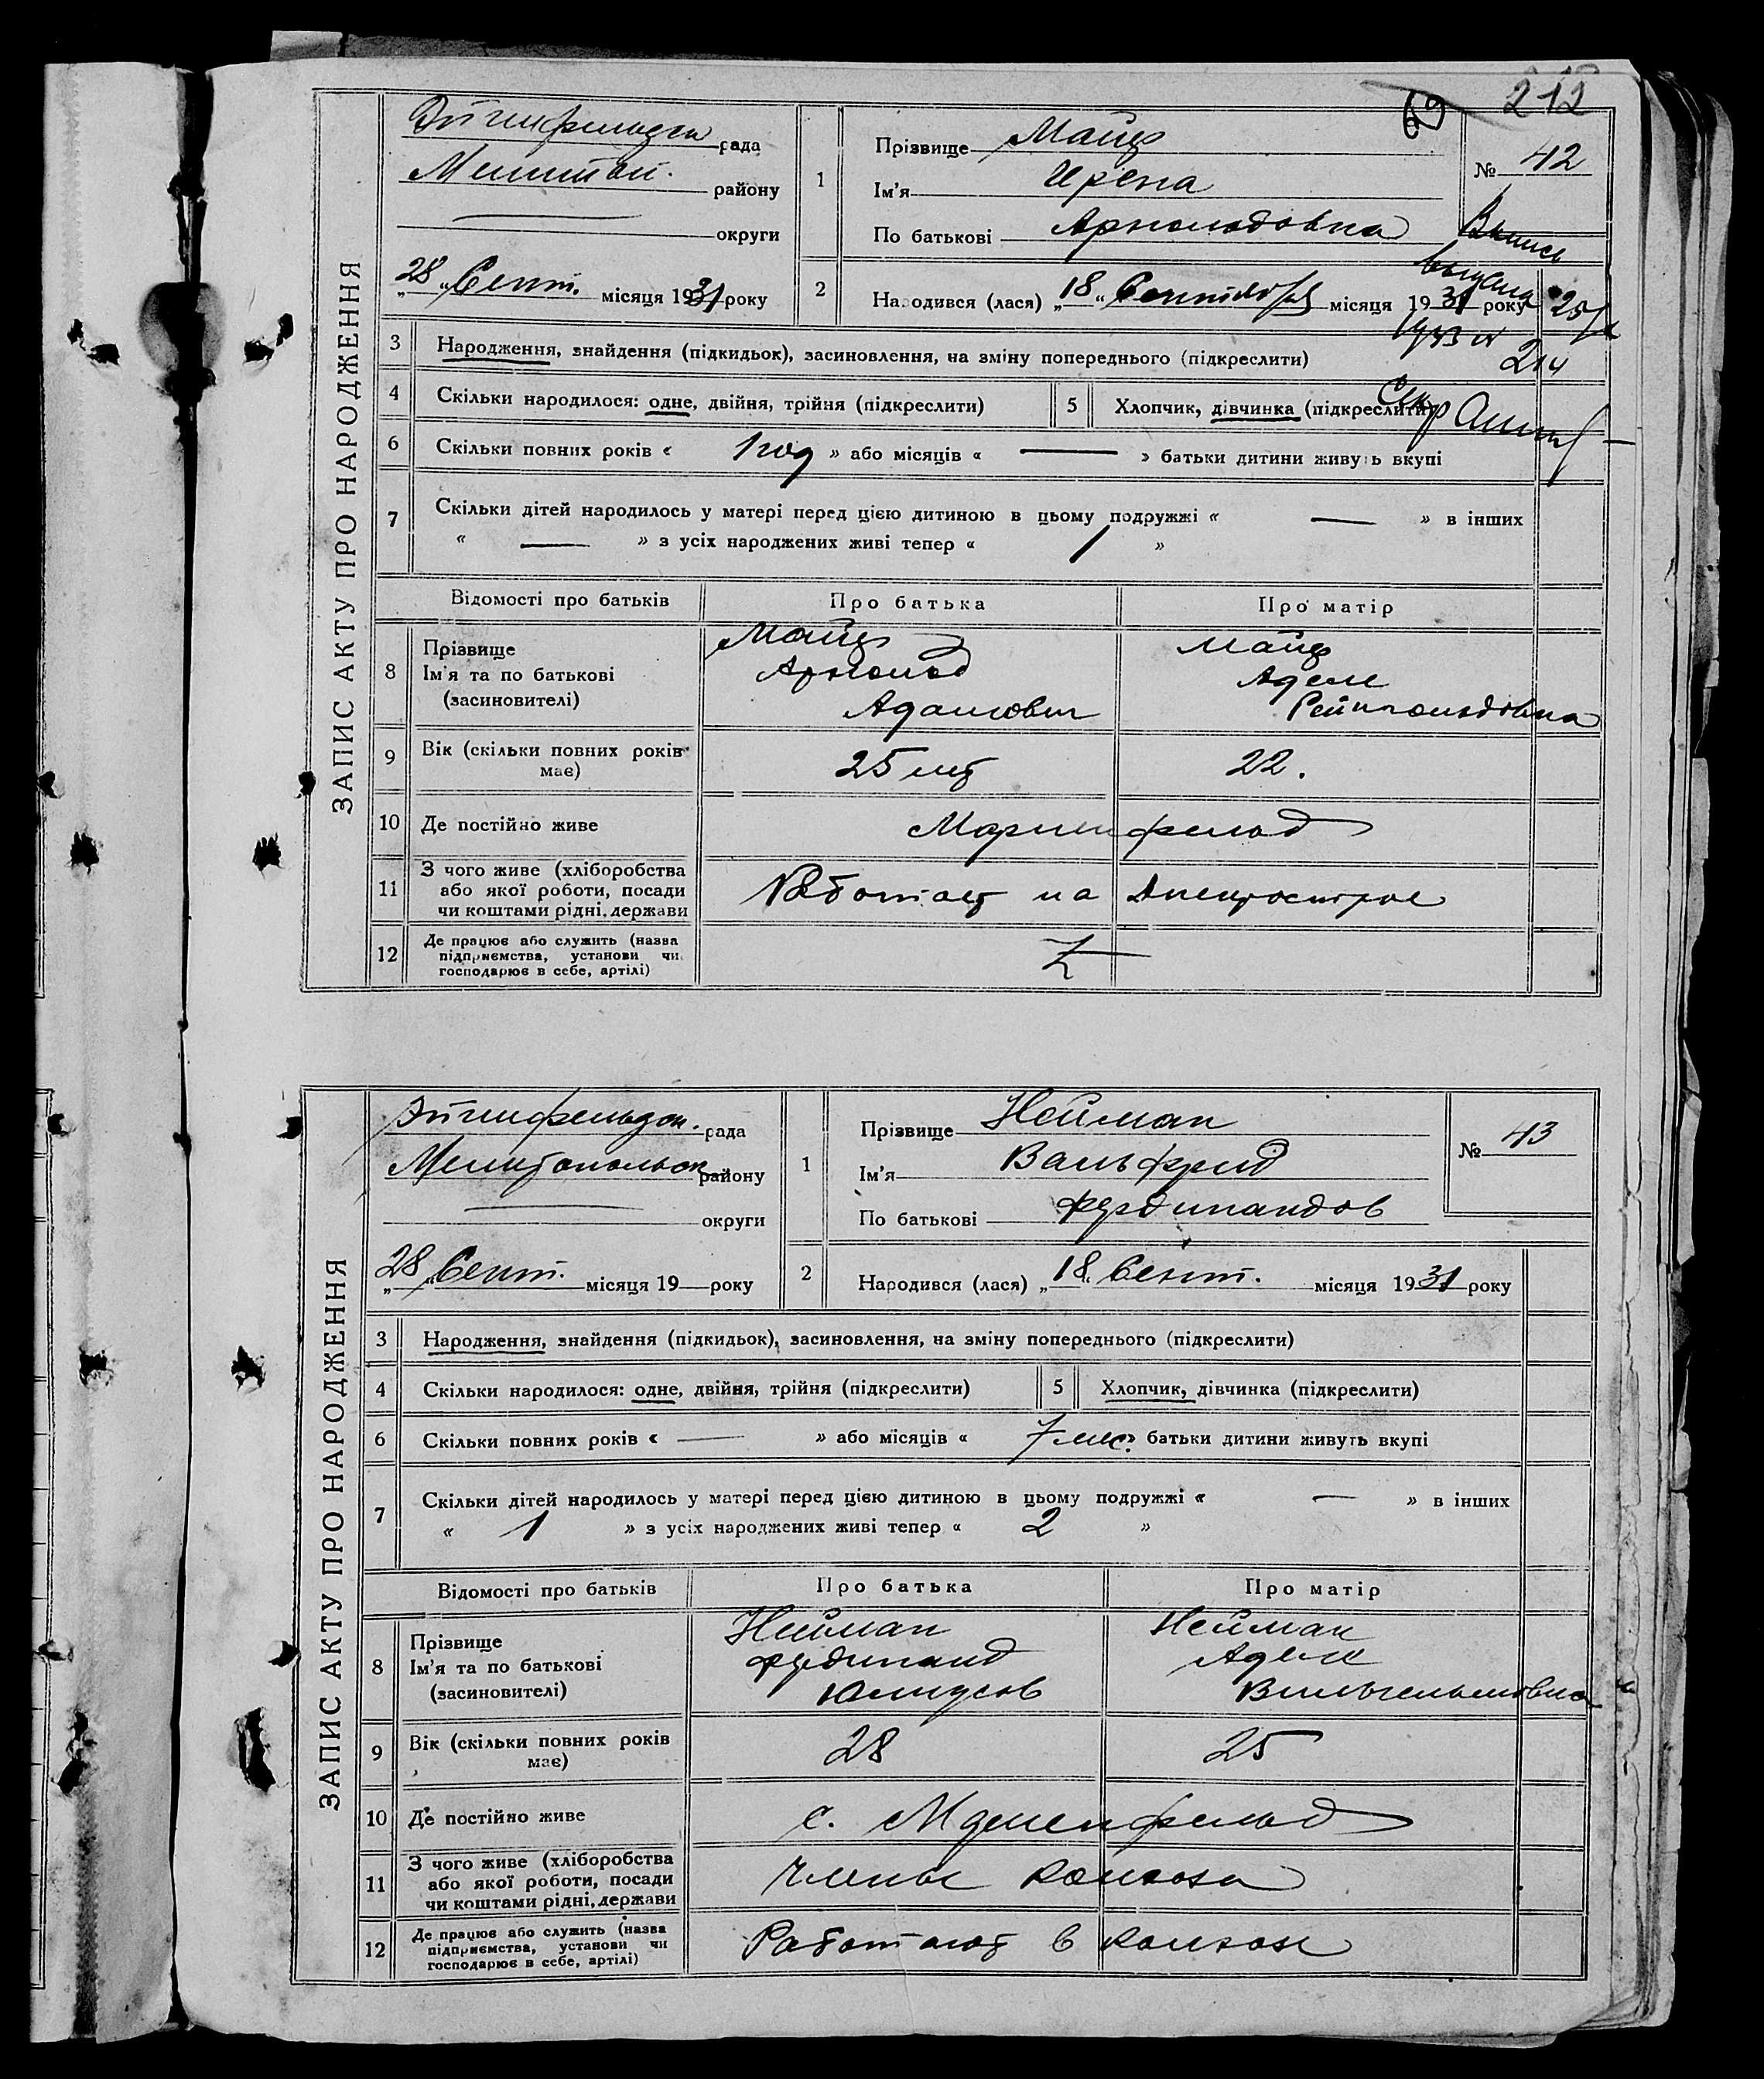 212
ЗАПИС АКТУ ПРО НАРОДЖЕННЯ
Эйгенфельдск рада
Мелитоп. району
округи
„28„ Сент. місяця 1931 року
1
Прізвище Майер
Ім'я Ирена
По батькові Арнольдовна
№ 42
Выпись
выдана
25/
2
Народився (лася) „18„ Сентября місяця 1931 року
3 Народження, знайдення (підкидьок), засиновлення, на зміну попереднього (підкреслити)
4 Скільки народилося: одне, двійня, трійня (підкреслити)
5 Хлопчик, дівчинка (підкреслити)
Секр
6 Скільки повних років « 1 год » або місяців « — » батьки дитини живуть вкупі
7 Скільки дітей народилось у матері перед цією дитиною в цьому подружжі « — » в інших
« — » з усіх народжених живі тепер « 1 »
Відомості про батьків Про батька Про матір
8 Прізвище Майер Майер
Ім'я та по батькові Арнольд Аделе
(засиновителі) Адамович Рейнгольдовна
9 Вік (скільки повних років має) 25 лет 22.
10 Де постійно живе Мариенфельд
11 З чого живе (хліборобства
або якої роботи, посади
чи коштами рідні, держави
Работает на Днепрострое
12 Де працює або служить (назва
підприємства, установи чи
господарює в себе, артілі)
ЗАПИС АКТУ ПРО НАРОДЖЕННЯ
Эйгенфельдск. рада
Мелитопольск району
округи
„28„ Сент. місяця 19— року
1
Прізвище Нейман
Ім'я Вальфрид
По батькові Фердинандов
№ 43
2
Народився (лася) „18„ Сент. місяця 1931 року
3 Народження, знайдення (підкидьок), засиновлення, на зміну попереднього (підкреслити)
4 Скільки народилося: одне, двійня, трійня (підкреслити)
5 Хлопчик, дівчинка (підкреслити)
6 Скільки повних років « — » або місяців « 7 мес. » батьки дитини живуть вкупі
7 Скільки дітей народилось у матері перед цією дитиною в цьому подружжі « — » в інших
« 1 » з усіх народжених живі тепер « 2 »
Відомості про батьків Про батька Про матір
8 Прізвище Нейман Нейман
Ім'я та по батькові Фердинанд Аделе
(засиновителі) Юлиусов Вильгельмовна
9 Вік (скільки повних років має) 28 25
10 Де постійно живе с.
11 З чого живе (хліборобства
або якої роботи, посади
чи коштами рідні, держави
Члены колхоза
12 Де працює або служить (назва
підприємства, установи чи
господарює в себе, артілі)
Работают в колхозе